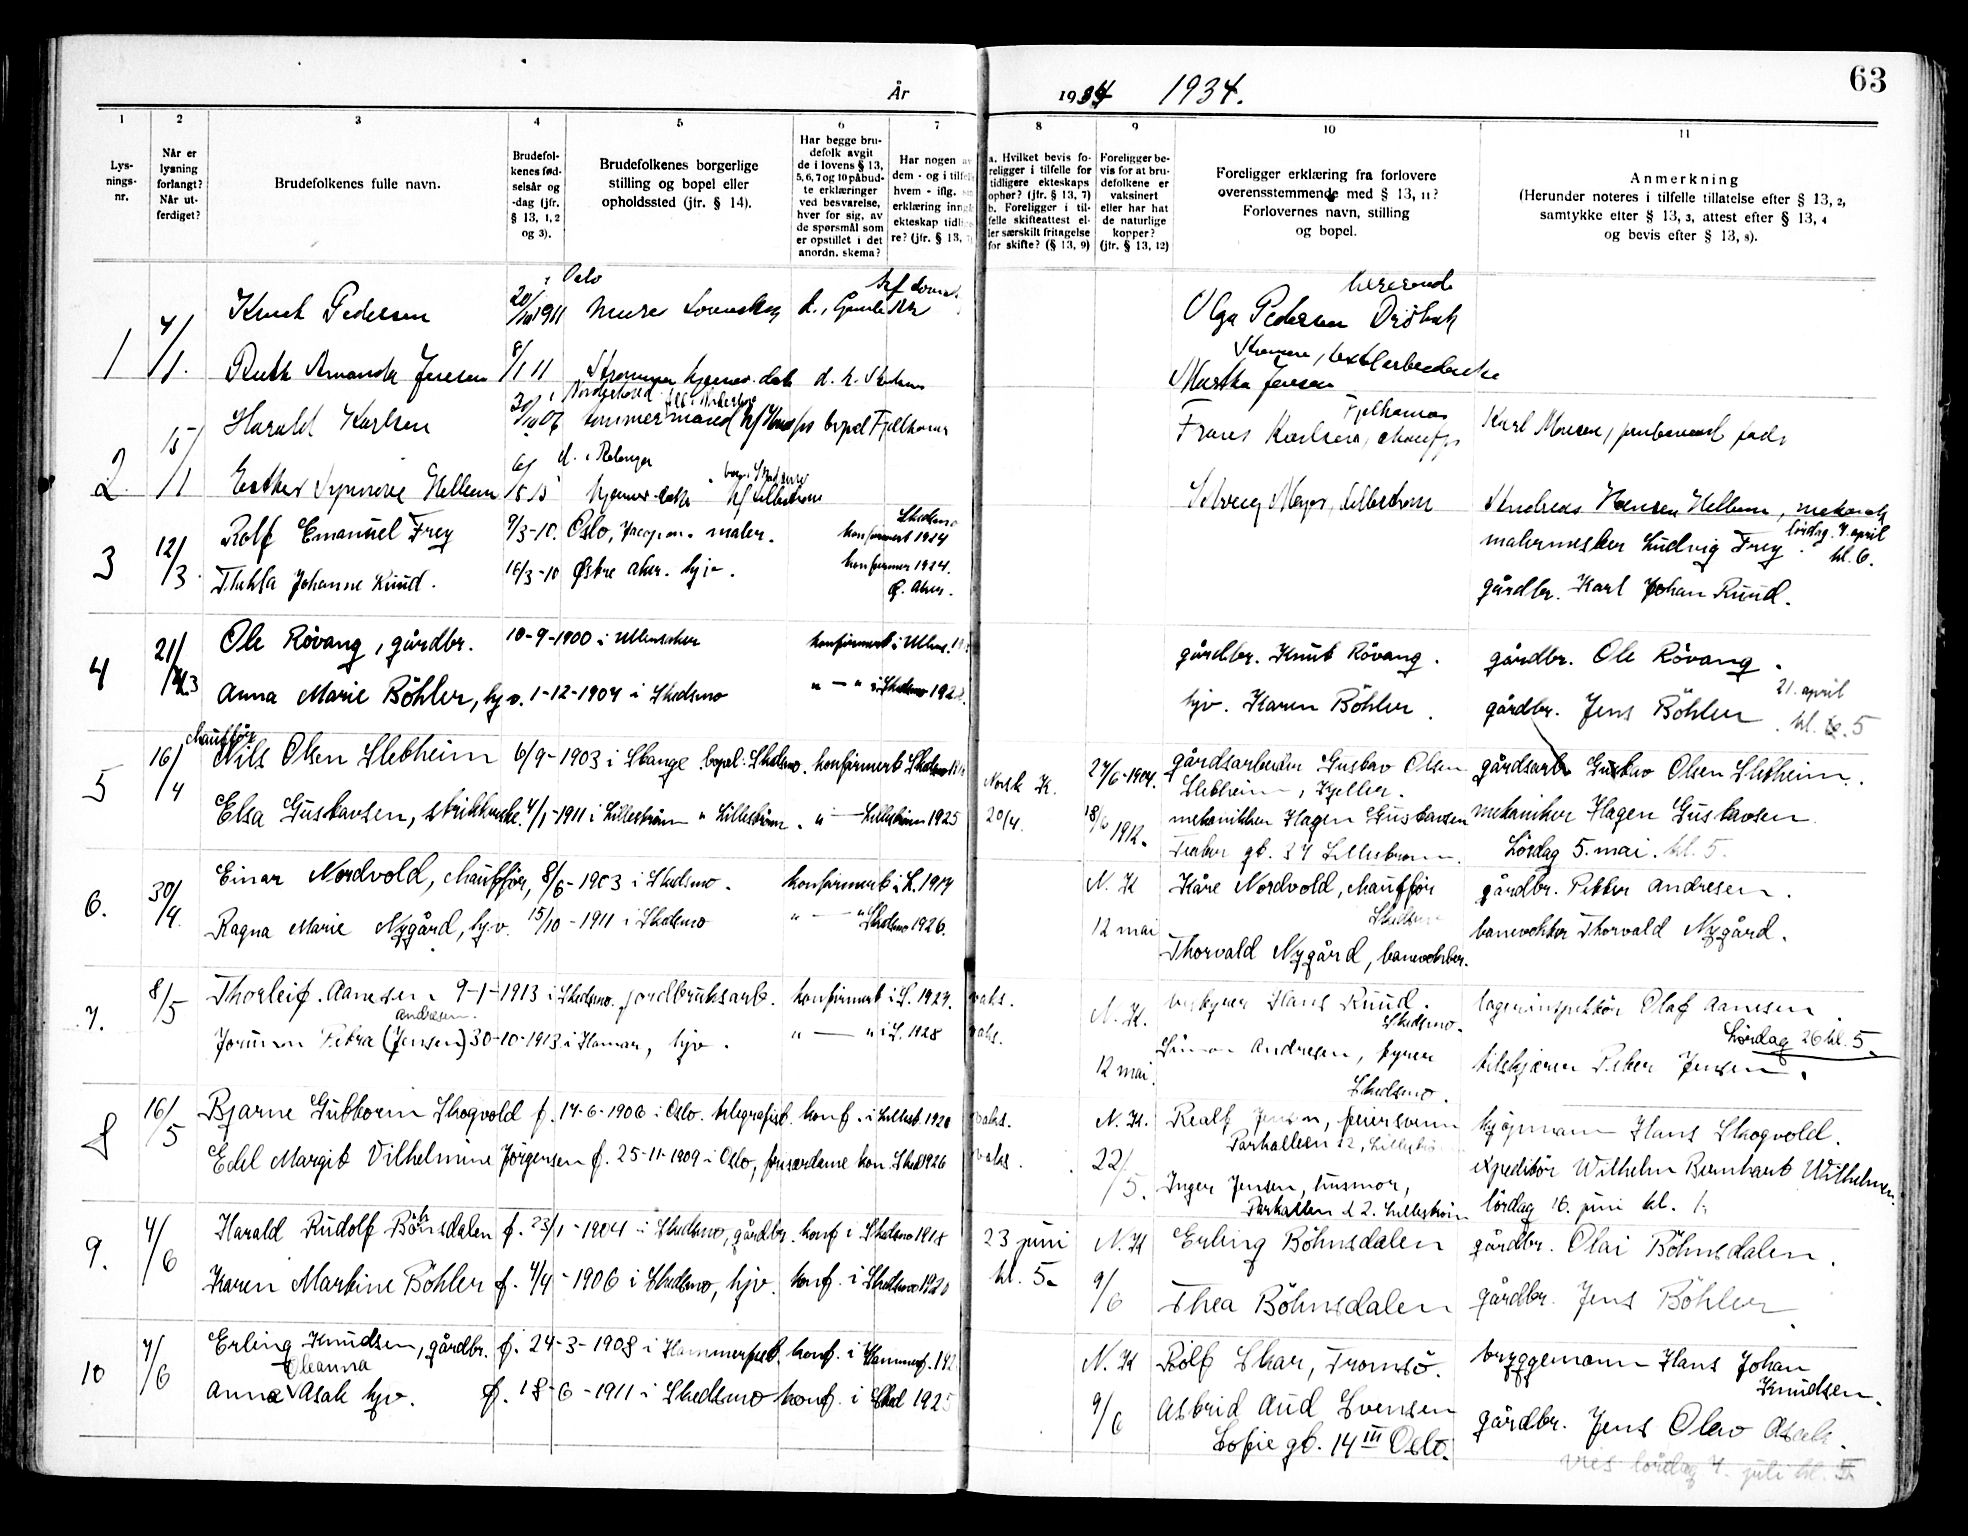 63
År 1934 1934.
1 2 3 4 5 6 7 8 9 10 11
Lys-
nings-
nr.
Når er
lysning
forlangt?
Når ut-
ferdiget?
Brudefolkenes fulle navn.
Brudefol-
kenes fød-
selsår og
-dag (jfr.
§ 13, 1, 2
og 3).
Brudefolkenes borgerlige
stilling og bopel eller
opholdssted (jfr. § 14).
Har begge bru-
defolk avgit
de i lovens § 13,
5, 6, 7 og 10 påbud-
te erklæringer
ved besvarelse,
hver for sig, av
de spørsmål som
er opstillet i det
anordn. skema?
Har nogen av
dem - og i tilfelle
hvem - iflg.
erklæring inngått
ekteskap tidlige-
re? (jfr. § 13,
a. Hvilket bevis fo-
religger i tilfelle for
tidligere ekteskaps
ophør? (jfr. § 13, 7)
b. Foreligger i til-
felle skifteattest el-
ler særskilt fritagelse
for skifte? (§ 13, 9)
Foreligger be-
vis for at bru-
defolkene er
vaksinert
eller har hat
de naturlige
kopper?
(jfr. § 13, 12)
Foreligger erklæring fra forlovere
overensstemmende med § 13, 11?
Forlovernes navn, stilling
og bopel.
Anmerkning
(Herunder noteres i tilfelle tillatelse efter § 13, 2,
samtykke efter § 13, 3, attest efter § 13, 4
og bevis efter § 13, 8).
i Oslo
1 4/1. Knut Pedersen 20/10 1911 murer
Olga Pedersen Drøbak
Ruth Amanda Jensen 8/1 11 Strømmen hjemmev. datter
Martha Jensen
2 15/1 Harald Karlsen 30/10 06 tømmermand bopel Fjellhamar
Fjellhamar
Frans Karlsen, chauffør Karl
Esther Synnøve Hellum hjemmev. datter Lillestrøm
Solveig Meyer, Lillestrøm Andreas Hansen Hellum, mekanik
3 12/3. Rolf Emanuel Frey 9/3-10. Oslo, maler. konfirmert 1924 Skedsmo
malermester Ludvig Frey. lørdag 7. april kl. 6.
Thekla Johanne Ruud. 16/3-10 Østre Aker. hjv. konfirmer 1924. Ø. Aker.
gårdbr. Karl Johan Ruud.
4 21/3 Ole Røvang, gårdbr. 10-9-1900 i Ullensaker konfirmert i Ullens.
gårdbr. Knut Røvang. gårdbr. Ole Røvang.
Anna Marie Bøhler, hjv. 1-12-1904 i Skedsmo " — " i Skedsmo
hjv. Karen Bøhler. gårdbr. Jens Bøhler. 21. april kl. 5
chauffør
5 16/4 Nils Olsen Slebheim 6/9-1903 i Stange bopel: Skedsmo. konfirmert Skedsmo
Norsk K. 27/6-1904. gårdsarbeider Gustav Olsen gårdsarb. Gustav Olsen Slebheim.
Slebheim, Kjeller.
Elsa Gustavsen, strikkerske. 4/1-1911 i Lillestrøm " Lillestrøm. " — Lillestrøm 1925
20/4. 18/6 1912. mekaniker Hagen Gustavsen mekaniker Hagen Gustavsen
gt. 37 Lillestrøm. Lørdag 5. mai. kl. 5.
6. 30/4. Einar Nordvold, chauffør, 8/6-1903 i Skedsmo. konfirmert i L. 1917
N. K Kåre Nordvold, chauffør gårdbr. Petter Andresen.
Skedsmo
Ragna Marie Nygård, hjv. 15/10-1911 i Skedsmo " — " Skedsmo 1926.
12 mai Thorvald Nygård, banevokter. banevokter Thorvald Nygård.
7. 8/5 Thorleif Aanesen 9-1-1913 i Skedsmo. jordbruksarb. konfirmert i S. 1927. vaks.
N. K. Hans Ruud. lagerinspektør Olaf Aanesen.
Skedsmo. Lørdag 26 kl. 5.
Andresen.
Jorunn Petra (Jensen) 30-10-1913 i Hamar, hjv. " — " i S. 1928 vaks.
12 mai. Simon Andresen, fyrer
Skedsmo. Peter Jensen.
8 16/5 Bjarne Guttorm Skogvold f. 17-6-1906 i Oslo. telegrafist. konf. i Lillest. vaks.
N. K. Realf Jensen, feiersvenn kjøpmann Hans Skogvold.
Parkalleen 12, Lillestrøm
Edel Margit Vilhelmine Jørgensen f. 25-11-1909 i Oslo, friserdame kon. Sked 1926 vaks.
22/5. Inger Jensen, husmor, ekspeditør Wilhelm Bernhart Wilhelmsen.
Parkalleen 12. Lillestrøm lørdag 16. juni kl. 1.
9. 4/6 Harald Rudolf Bøhnsdalen f. 23/1-1904 i Skedsmo, gårdbr. konf i Skedsmo 1918
23 juni N. K Erling Bøhnsdalen gårdbr. Olai Bøhnsdalen.
Karen Martine Bøhler f. 4/4-1906 i Skedsmo, hjv. konf. i Skedsmo 1920
kl. 5. 9/6 Thea Bøhnsdalen gårdbr. Jens Bøhler.
10 7/6 Erling Knudsen, gårdbr. f. 24-3-1908 i Hammerfest. konf. i Hammerf.
N. K Rolf Skar, Tromsø. bryggemann Hans Johan
Knudsen.
Oleanna
Anna Asak hjv. f. 18-6-1911 i Skedsmo konf. i Sked 1925
9/6 Astrid Aud Svensen gårdbr. Jens Olav Asak.
Sofie gt. 14 III Oslo. vies lørdag 7. juli kl. 5